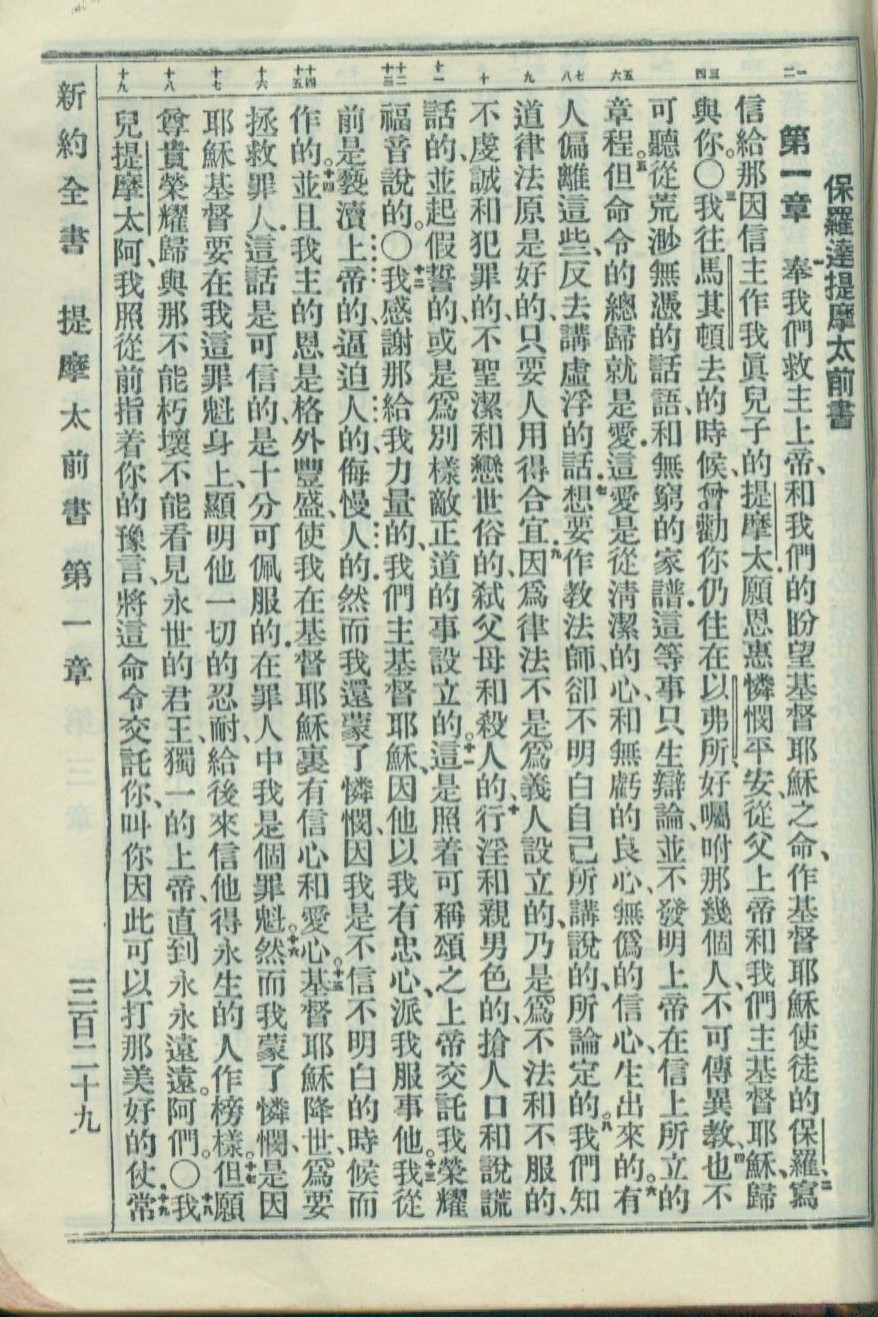 保羅達提摩太前書
一 二 三 四 五 六 七 八 九 十 十一 十二 十三 十四 十五 十六 十七 十八 十九
第一章 奉我們救主上帝、和我們的盼望基督耶穌之命、作基督耶穌使徒的保羅、二寫
信給那因信主作我眞兒子的提摩太願恩惠憐憫平安、從父上帝和我們主基督耶穌、歸
與你。〇三我往馬其頓去的時候、曾勸你仍住在以弗所、好囑咐那幾個人、不可傳異教、四也不
可聽從荒渺無憑的話語、和無窮的家譜這等事只生辯論、並不發明上帝在信上所立的
章程。五但命令的總歸就是愛這愛是從淸潔的心和無虧的良心、無僞的信心、生出來的。六有
人偏離這些、反去講虛浮的話七想要作教法師、卻不明白自己所講說的、所論定的。八我們知
道律法原是好的、只要人用得合宜、九因爲律法不是爲義人設立的、乃是爲不法和不服的、
不虔誠和犯罪的、不聖潔和戀世俗的、弒父母和殺人的、十行淫和親男色的、搶人口和說謊
話的、並起假誓的、或是爲別樣敵正道的事設立的。十一這是照着可稱頌之上帝交託我榮耀
福音說的。〇十二我感謝那給我力量的、我們主基督耶穌、因他以我有忠心、派我服事他。十三我從
前是褻瀆上帝的、逼迫人的、侮慢人的然而我還蒙了憐憫、因我是不信不明白的時候而
作的。十四並且我主的恩是格外豐盛、使我在基督耶穌裏有信心和愛心。十五基督耶穌降世、爲要
拯救罪人這話是可信的、是十分可佩服的在罪人中我是個罪魁。十六然而我蒙了憐憫、是因
耶穌基督要在我這罪魁身上、顯明他一切的忍耐、給後來信他得永生的人作榜樣。十七但願
尊貴榮耀歸與那不能朽壞不能看見永世的君王、獨一的上帝、直到永永遠遠。阿們。〇十八我
兒提摩太阿、我照從前指着你的豫言、將這命令交託你、叫你因此可以打那美好的仗十九常
新約全書 提摩太前書 第一章 三百二十九